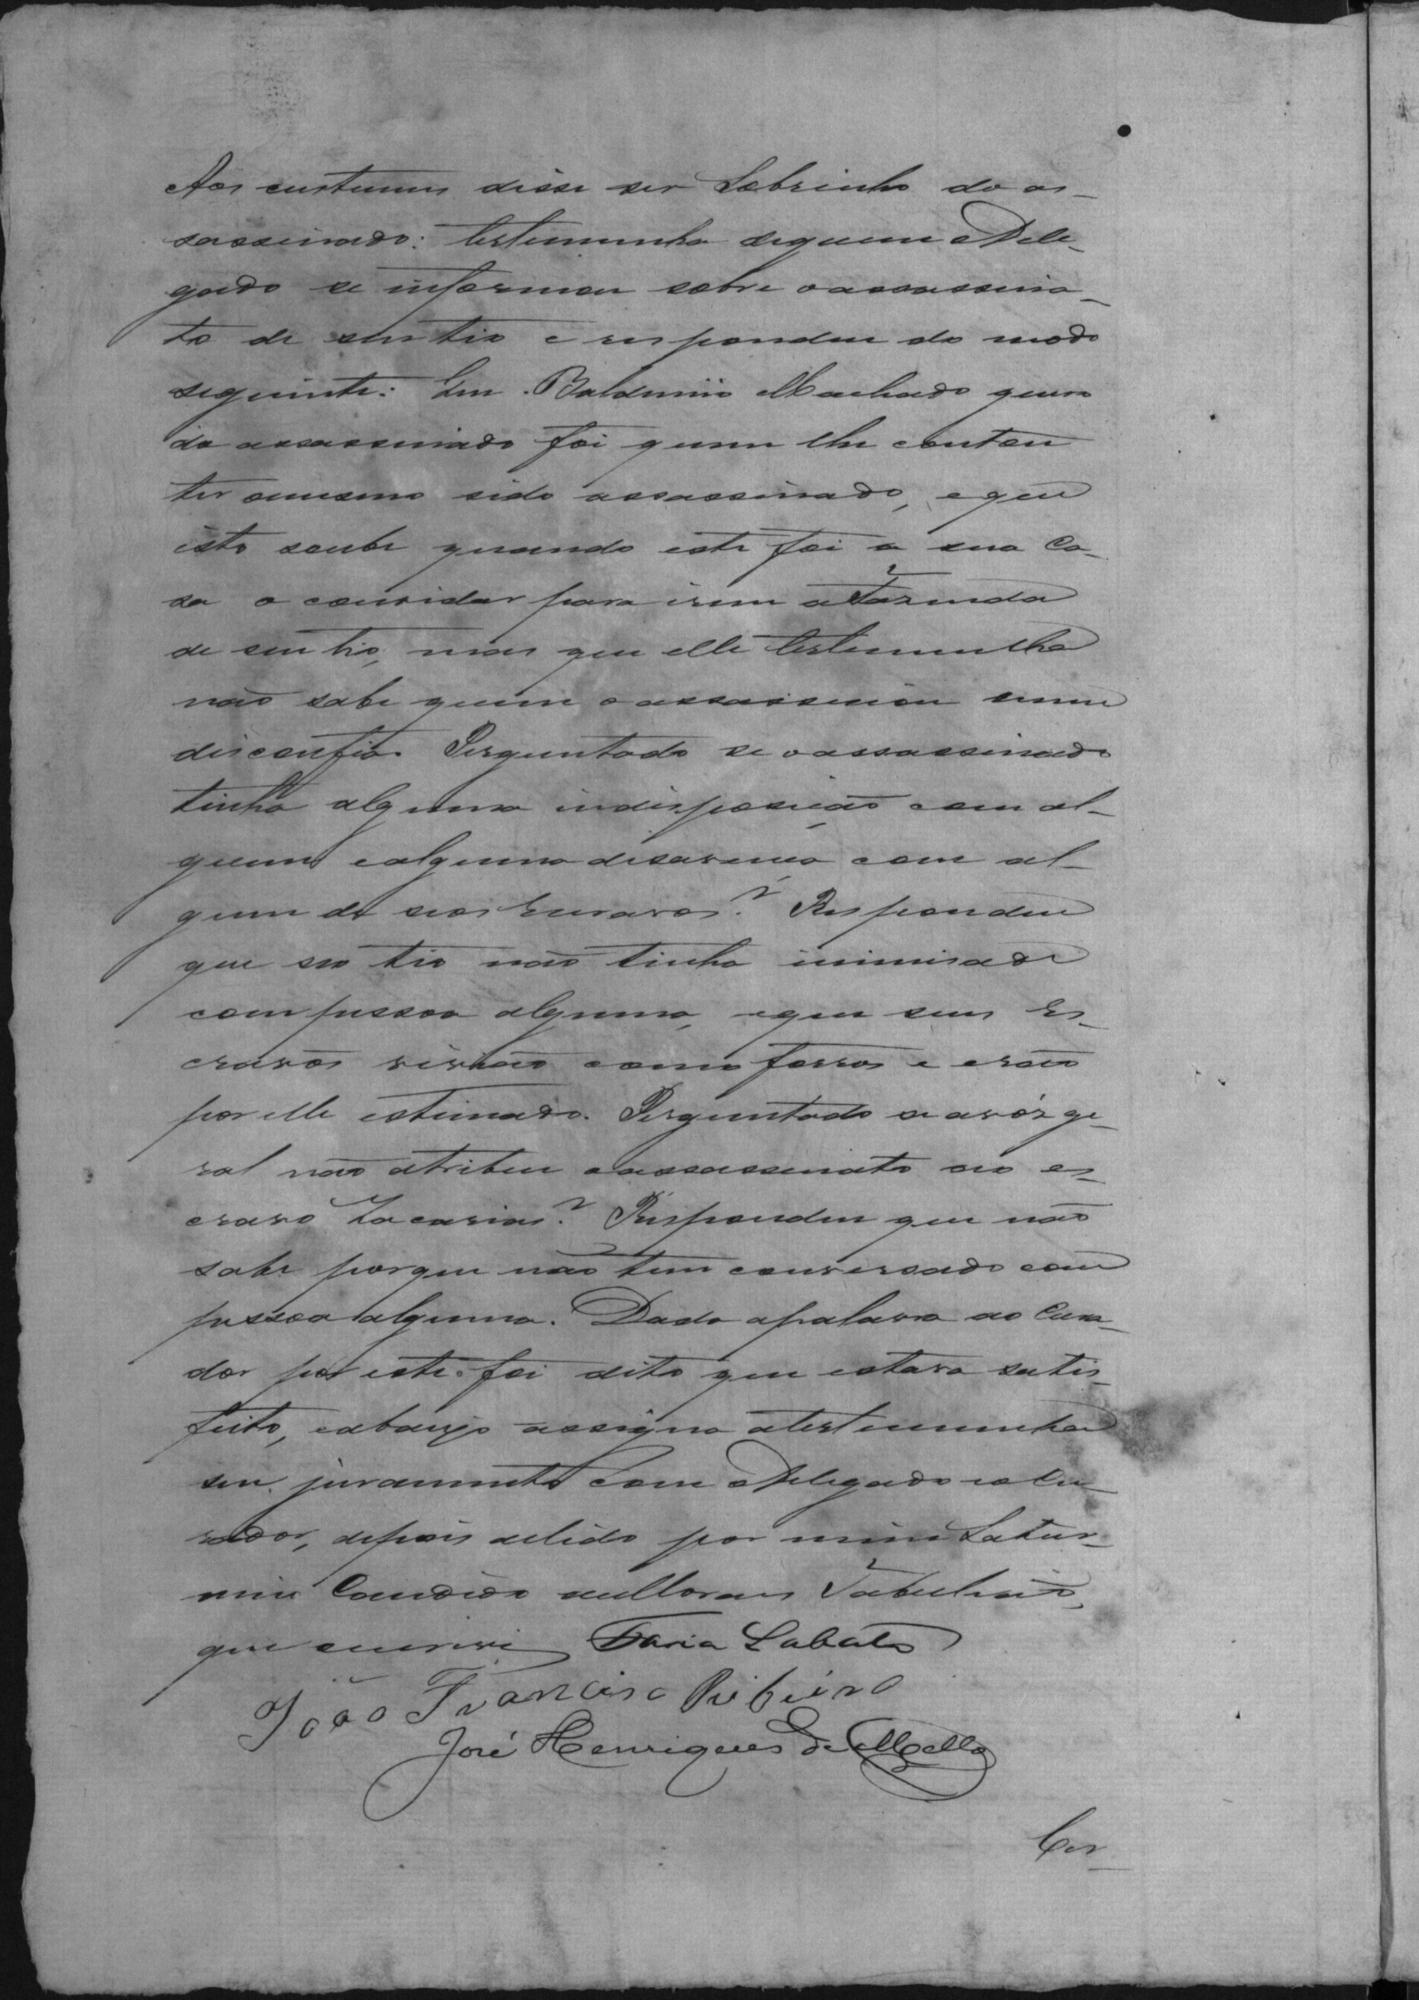 Aos custumes disse ser Sobrinho do as-
sassinado: testemunha a quem o Dele-
gado se informou sobre o assassina-
to de seu tio e respondeu do modo
seguinte: Que Balduino Machado genro
do assassinado foi quem lhe contou
ter o mesmo sido assassinado, e que
isto soube quando este foi a sua Ca-
sa o convidar para irem a Fazenda
de seu tio, mas que elle testemunha
não sabe quem o assassinou nem
disconfia. Perguntado se o assassinado
tinha alguma indisposição com al-
guem e alguma disavença com al-
gum de seos Escravos? Respondeu
que seo tio não tinha inimisade
com pessoa alguma, e que seus Es-
cravos vivião como forros e erão
por elle estimado. Perguntado se a vóz ge-
ral não atribue o assassinato ao es-
cravo Zacarias? Respondeu que não
sabe porque não tem conversado com
pessoa alguma. Dada a palavra ao Cura-
dor por este foi dito que estava satis-
feito, e abaixo assigna a testemunha
seu juramento com o Delegado e o Cu-
rador, depois de lido por mim Satur-
nino Candido Tabelião,
que escrevi Faria Lobato
João Francisco Ribeiro
José Henriques de Mello
Cer-